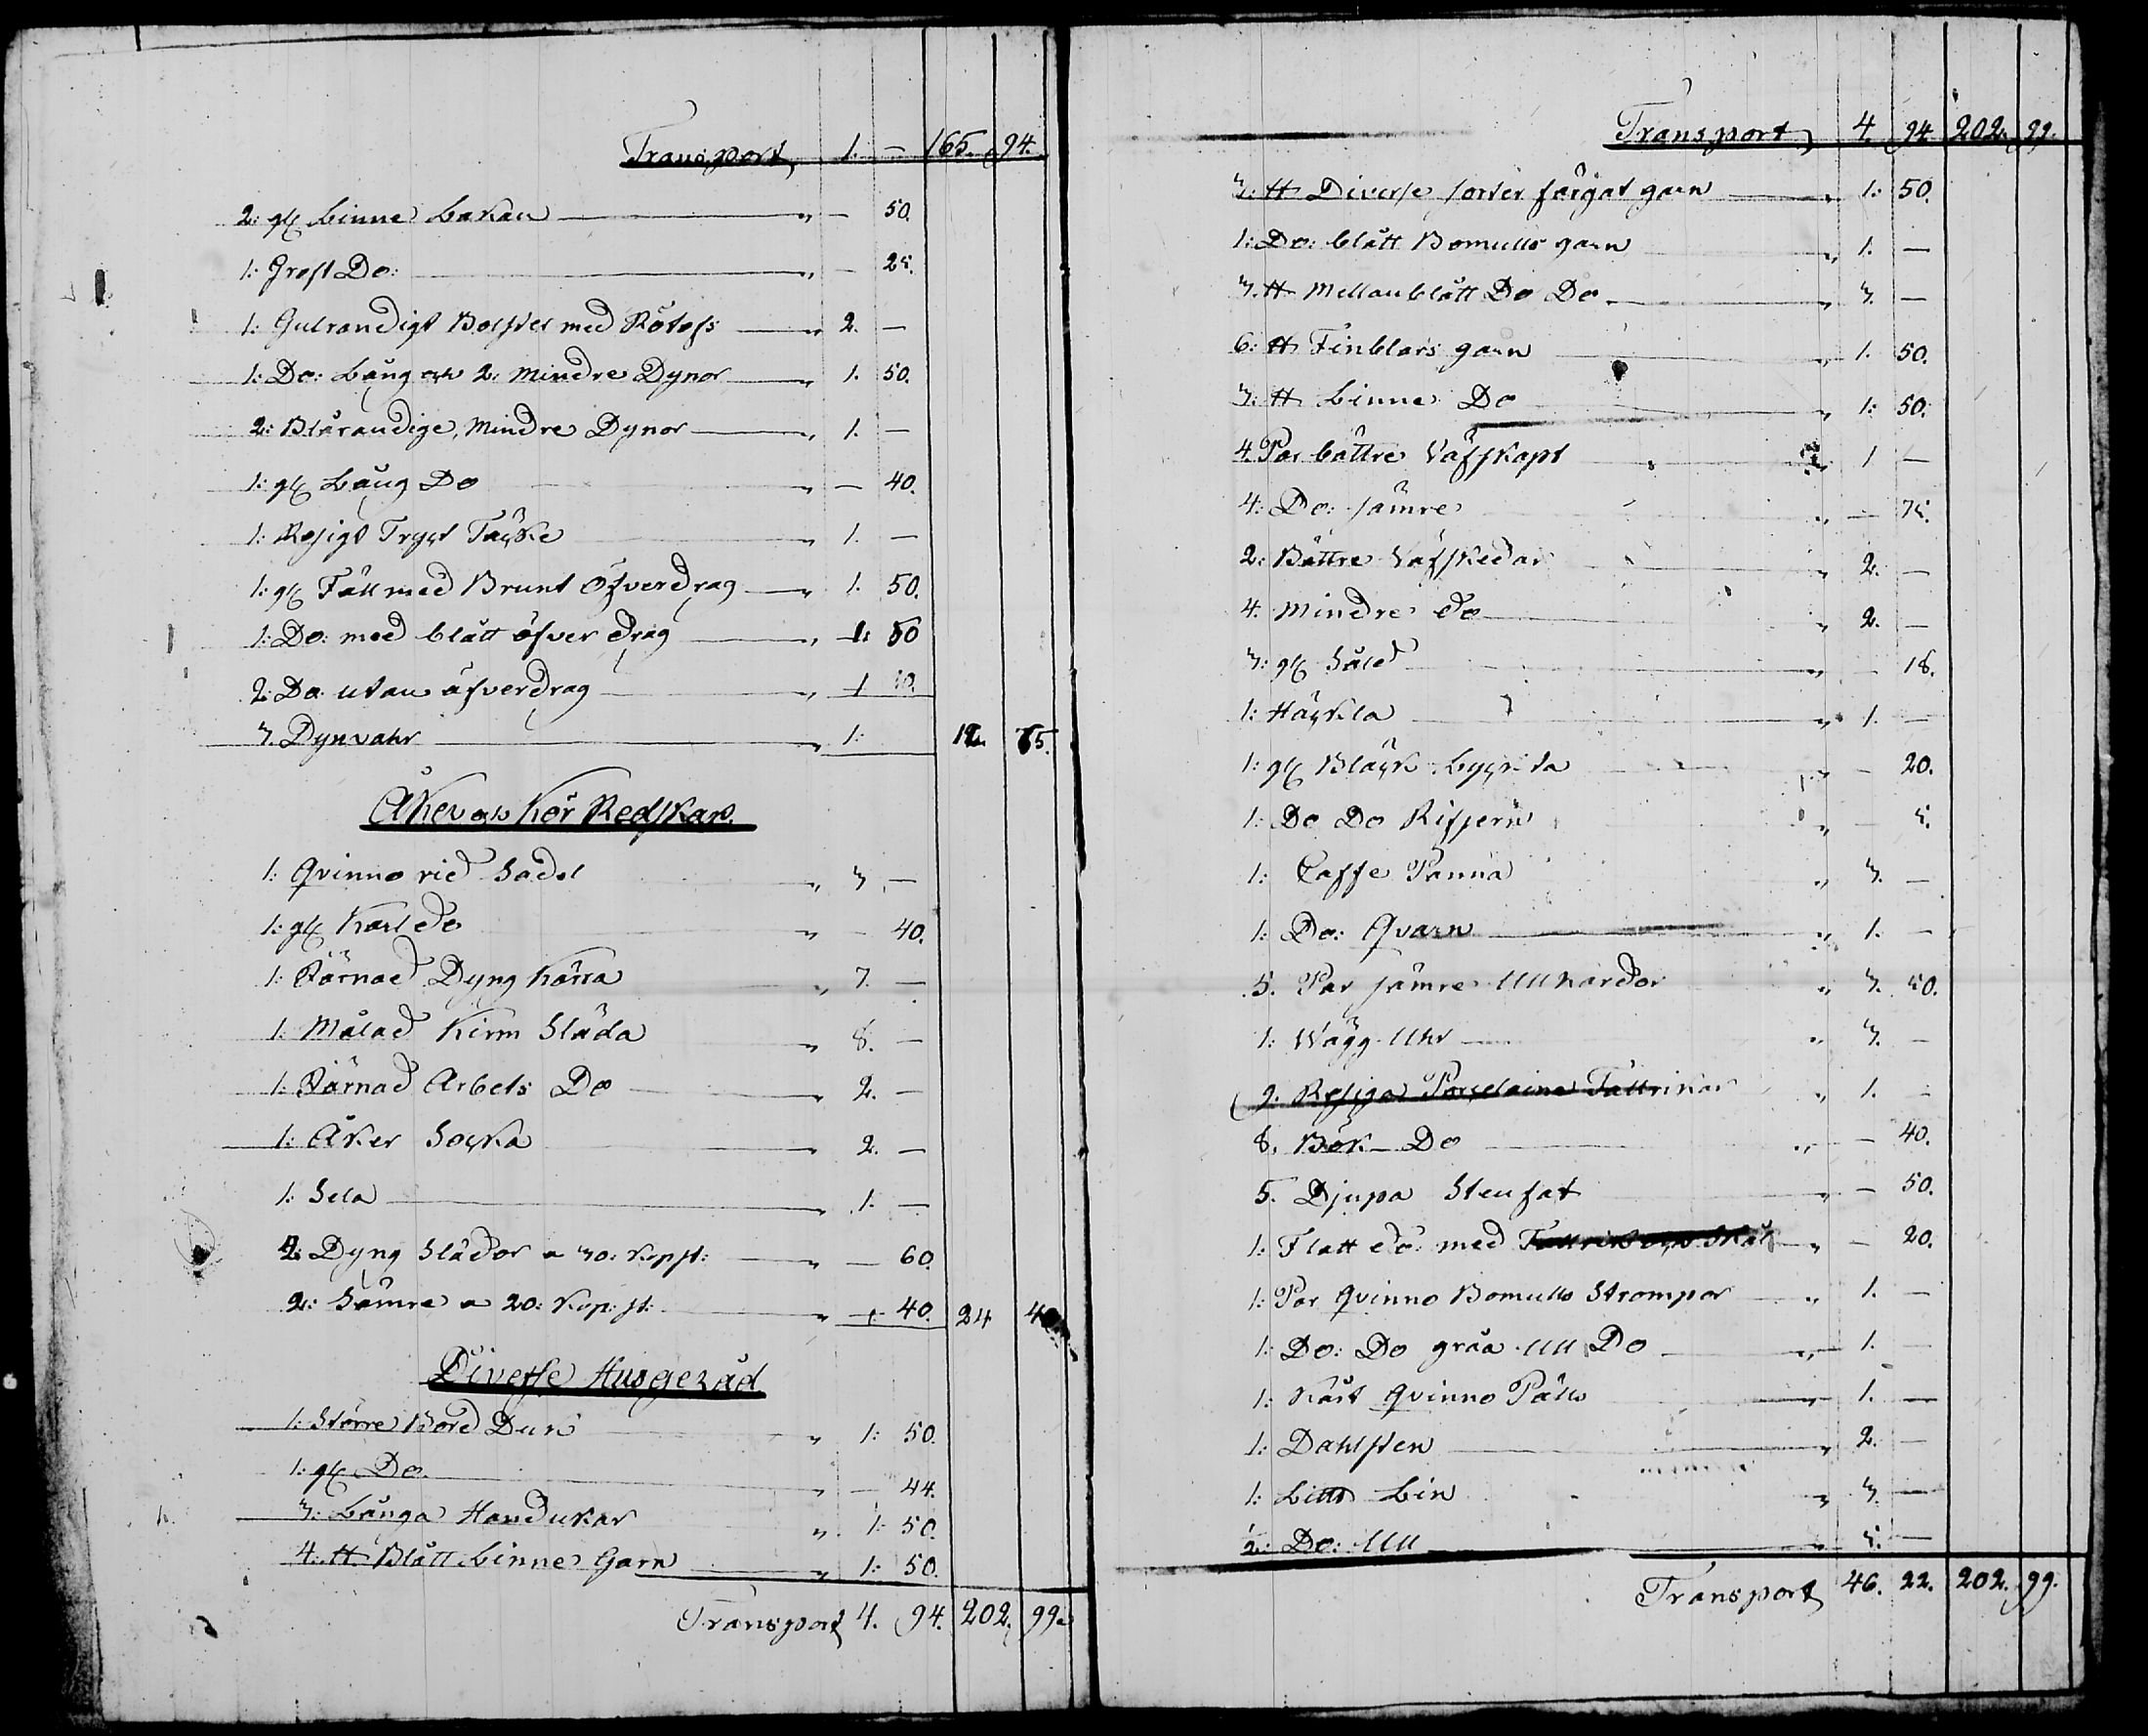 Transport, 1. — 165. 94.
2: gl Linne Lakan " — 50.
1: Groft Do: " — 25.
1: Gulrandigt Bolster med " 2. —
1: Do: Lång och 2: mindre Dynor " 1. 50.
2: Blårandige, mindre Dynor " 1. —
1: gl Lång Do " — 40.
1: Rosigt Tryct Täcke " 1. —
1: gl Fäll med Brunt Öfverdrag " 1. 50.
1: Do: med blått öfver drag " 1: 50
2: Do utan öfverdrag " 1
3. Dynvahr " 1: 12. 65.
Åker och Kör Redskap.
1: Qvinno rid Sadel " 3. —
1: gl Karl do " — 40.
1: Järnad Dyng Kärra " 7. —
1: Målad Kirm Släda " 8. —
1: Järnad Arbets Do " 2. —
1: Åker Socka " 2. —
1: Sela " 1. —
2: Dyng Slädor a 30: Kop st: " — 60.
2: Sämre a 20: Kop: st: " — 40. 24 40
Diverse Husgeråd
1: Större Bord Duk " 1: 50.
1: gl Do. " — 44.
3: Långa Handukar " 1: 50.
4. ℔ Blått Linne Garn " 1: 50.
Transport 4. 94. 202. 99.
Transport, 4. 94. 202. 99.
3: ℔ Diverse sorter färgat garn " 1: 50.
1: Do: blått Bomulls garn " 1. —
3. ℔ Mellanblått Do Do " 3. —
6: ℔ Finblårs garn " 1. 50.
3: ℔ Linne Do " 1: 50.
4. Par bättre Väfskapt " 1 —
4: Do: sämre " — 75.
2: Bättre Väfskedar " 2. —
4. Mindre do " 2. —
3: gl Såld " — 18.
1: Häckla " 1. —
1: gl Bläck Lyckta " — 20.
1: Do Do Rifjern " — 5.
1: Caffe Panna " 3. —
1: Do: Qvarn " 1. —
5. Par sämre Ullkardor " 3. 50.
1: Wägg Uhr " 3. —
9. Rosiga Porcelaine Tallrikar " 1. —
8. Bök Do " — 40.
5. Djupa Stenfat " — 50.
1: Flatt do: med Tallrik och Skål " — 20.
1: Par Qvinno Bomulls Strumpor " 1. —
1: Do: Do gråa Ull Do " 1. —
1: Kårt Qvinno Päls " 1. —
1: Dahlsten " 2. —
1: Litts Lin " 3. —
2: Do: Ull " 5. —
Transport 46. 22. 202. 99.